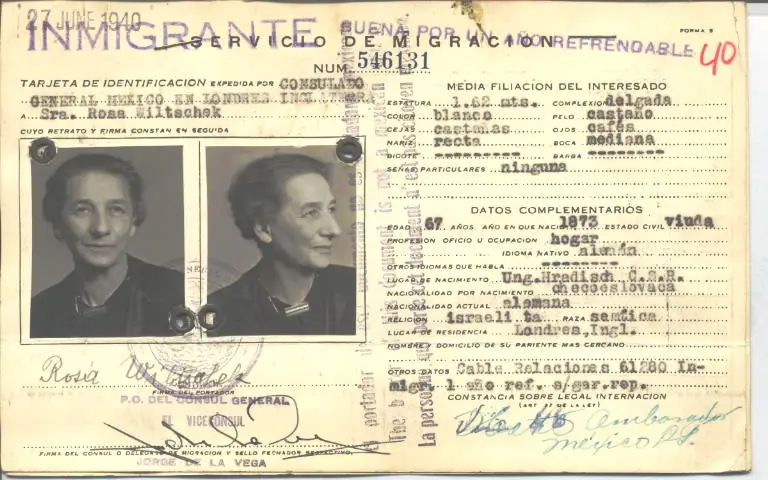 27 JUNE 1940
INMIGRANTE BUENA POR UN AÑO REFRENDABLE
SERVICIO DE MIGRACION
FORMA 5
40
NUM. 546131
TARJETA DE IDENTIFICACION EXPEDIDA POR CONSULADO
GENERAL MEXICO EN LONDRES INGLATERRA
A Sra. Rosa Wiltschek
CUYO RETRATO Y FIRMA CONSTAN EN SEGUIDA
Rosa Wiltschek
FIRMA DEL PORTADOR
P.O. DEL CONSUL GENERAL
EL VICECONSUL
FIRMA DEL CONSUL O DELEGADO DE MIGRACION Y SELLO FECHADOR RESPECTIVO.
JORGE DE LA VEGA
MEDIA FILIACION DEL INTERESADO
ESTATURA 1.62 mts. COMPLEXION delgada
COLOR blanco PELO castaño
CEJAS castañas OJOS cafés
NARIZ recta BOCA mediana
BIGOTE --------- BARBA --------
SEÑAS PARTICULARES ninguna
DATOS COMPLEMENTARIOS
EDAD 67 AÑOS. AÑO EN QUE NACIO 1873 ESTADO CIVIL viuda
PROFESION OFICIO U OCUPACION hogar
IDIOMA NATIVO alemán
OTROS IDIOMAS QUE HABLA --------
LUGAR DE NACIMIENTO Ung.Hradisch C.S.R.
NACIONALIDAD POR NACIMIENTO checoeslovaca
NACIONALIDAD ACTUAL alemana
RELIGION israelita RAZA semítica
LUGAR DE RESIDENCIA Londres,Ingl.
NOMBRE Y DOMICILIO DE SU PARIENTE MAS CERCANO
OTROS DATOS Cable Relaciones 61280 In-
migr. 1 año ref. s/gar.rep.
CONSTANCIA SOBRE LEGAL INTERNACION
(ART. 37 DE LA LEY)
Embarcador
México D.F.
El portador
The b
is not a
La personne
document n'est pas